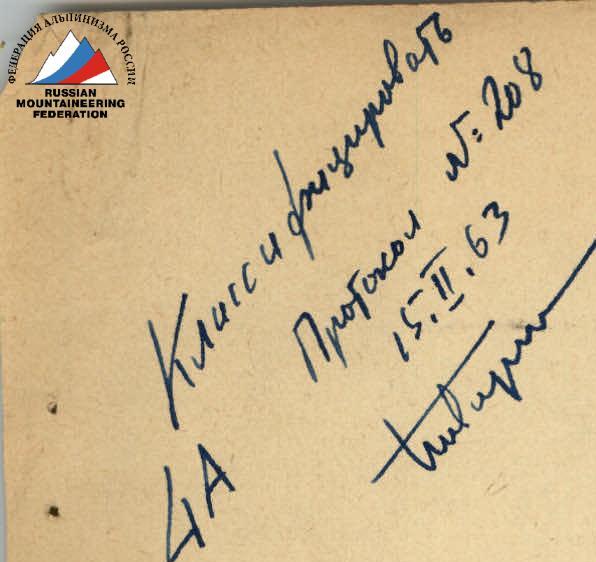 ФЕДЕРАЦИЯ АЛЬПИНИЗМА РОССИИ
RUSSIAN
MOUNTAINEERING
FEDERATION
Классифицировать
4А
Протокол №: 208
15.II.63